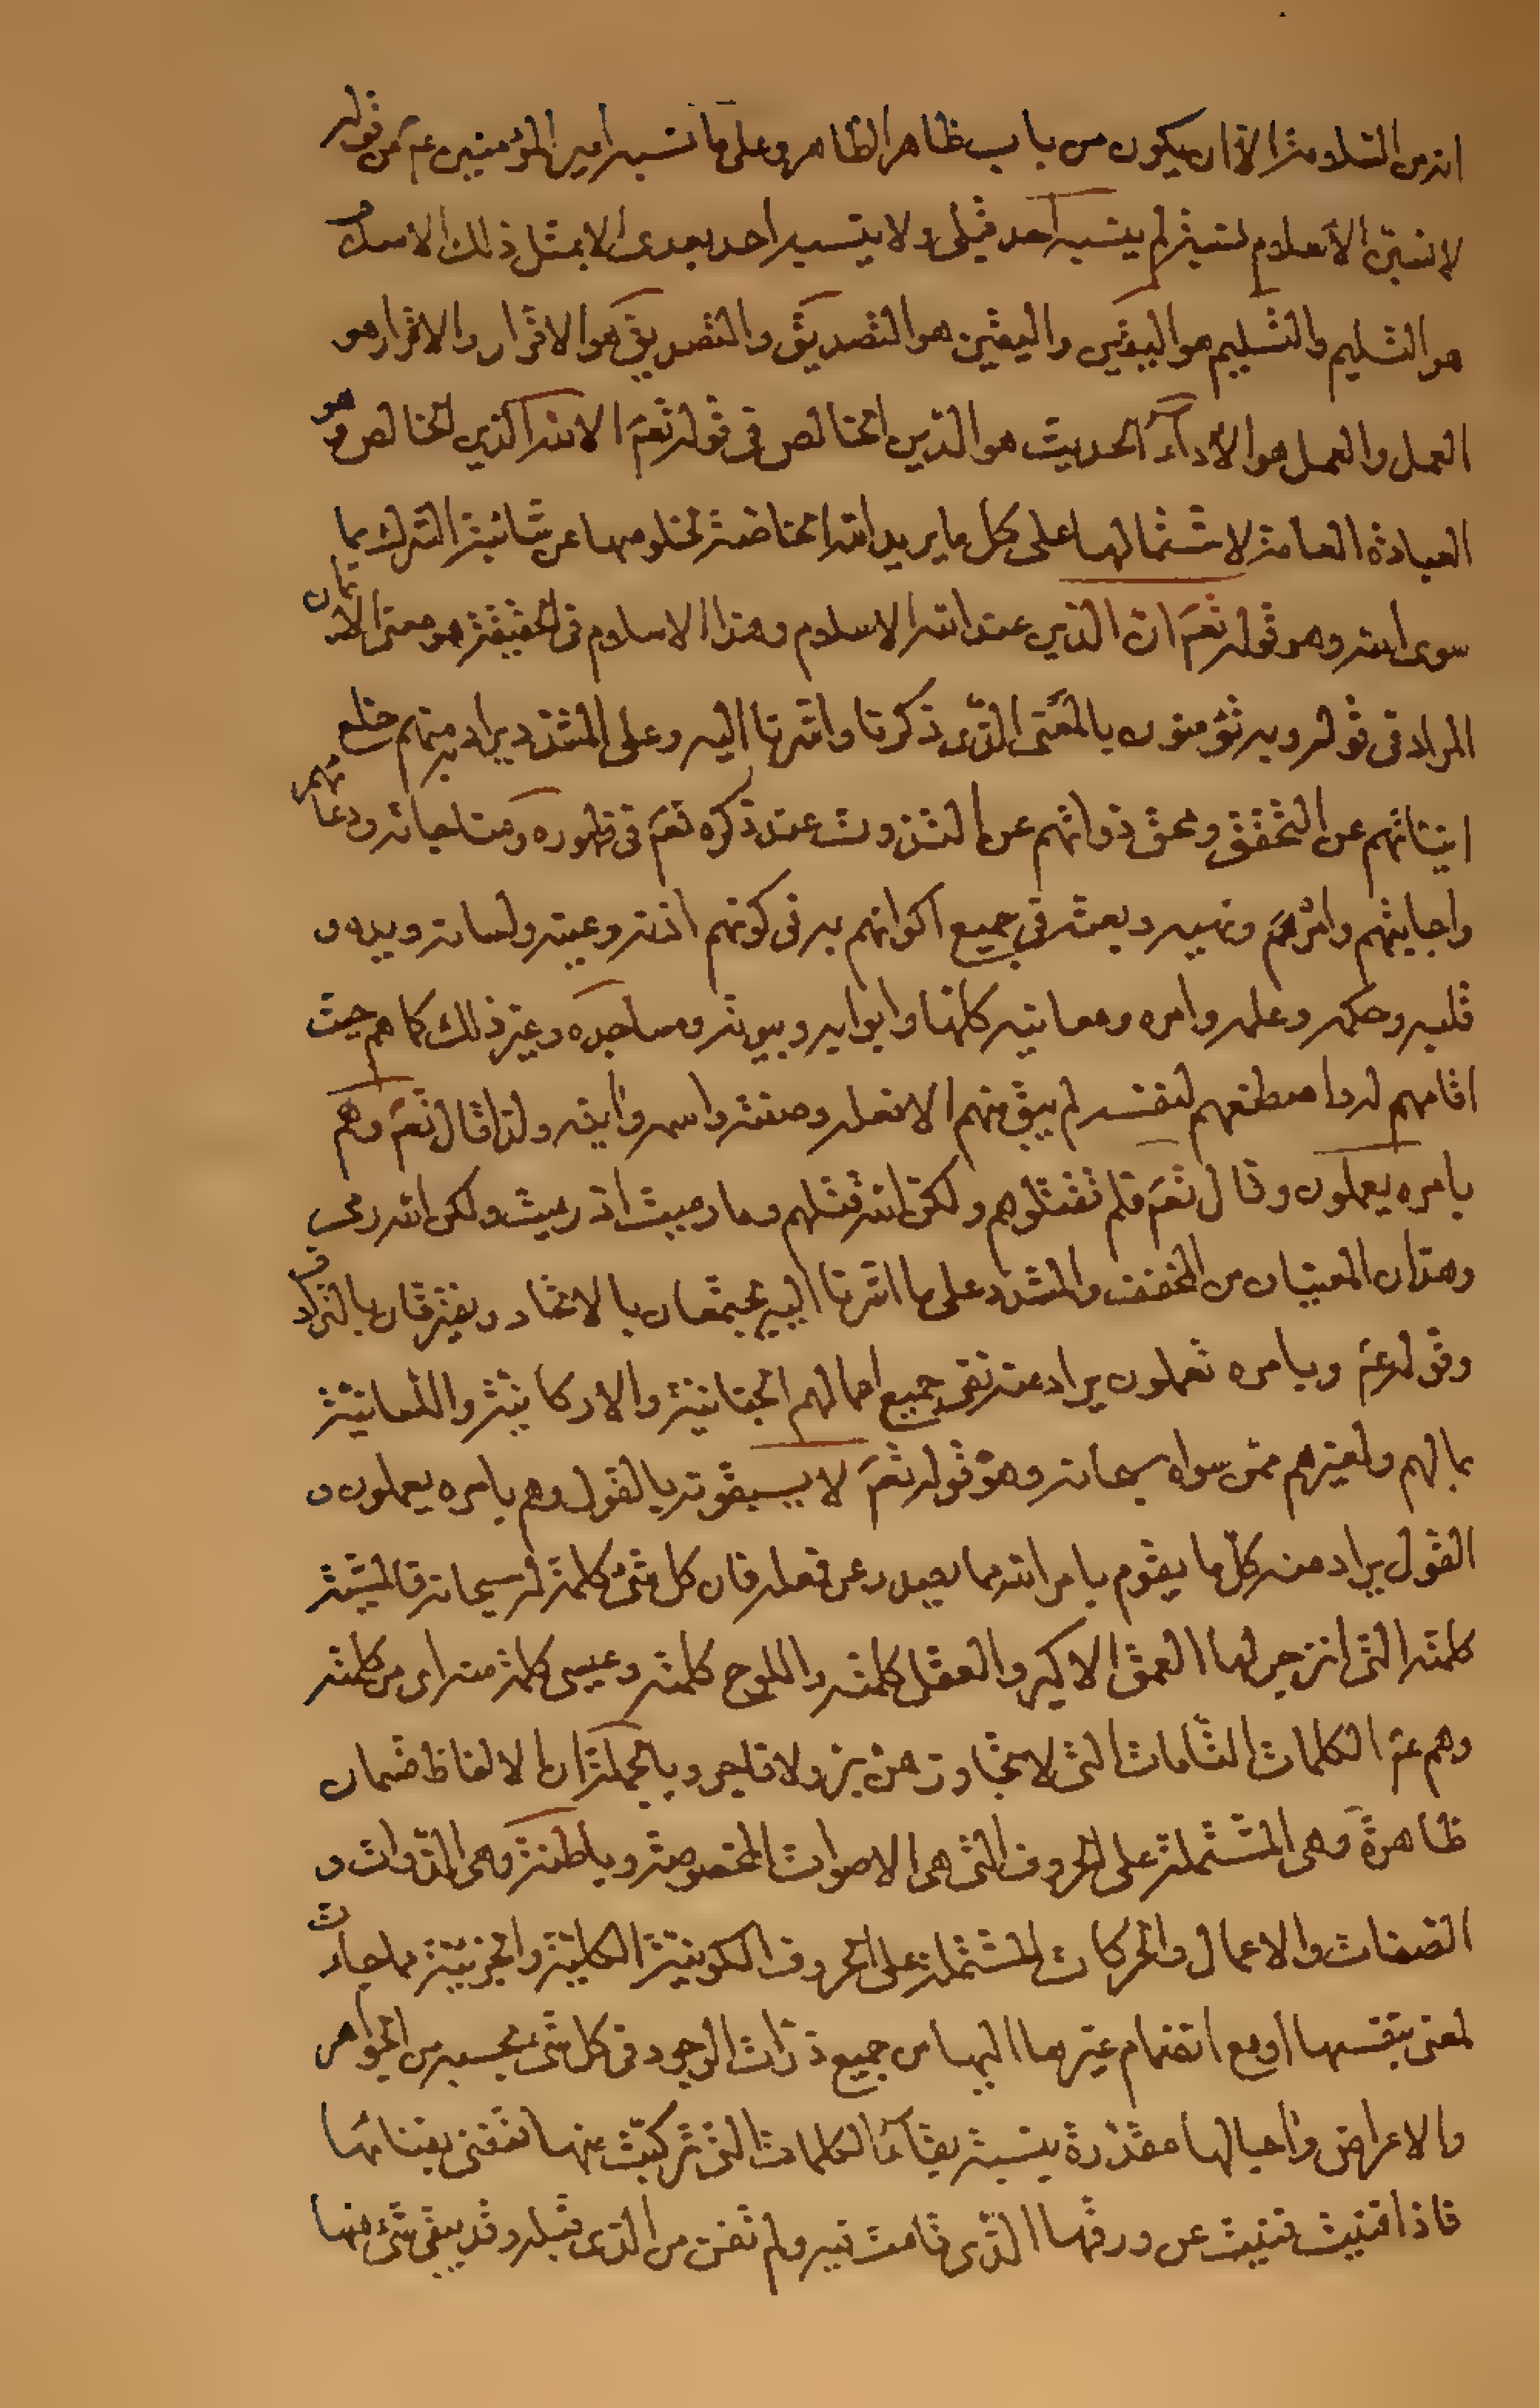 انه من السلامة الا ان يكون من باب ظاهر الظاهر وعلى ما نسبه امير المؤمنين عم من قوله
لانسبن الاسلام نسبة لم ينسبه احد قبلى ولا ينسبه احد بعدى الا بمثل ذلك الاسلام
هو التسليم والتسليم هو اليقين واليقين هو التصديق والتصديق هو الاقرار والاقرار هو
العمل والعمل هو الاداء الحديث هو الدين الخالص فى قوله تعم الا لله الدين الخالص وهو
العبادة العامة لاشتمالها على كل ما يريد الله الخاصة لخلوصها عن شائبة الشرك بما
سوى الله وهو قوله تعم ان الدين عند الله الاسلام وهذا الاسلام فى الحقيقة هو معنى الايمان
المراد فى قوله وبه تؤمنون بالمعنى الذى ذكرنا واشرنا اليه وعلى المشدد يراد به منهم خلع
انياتهم عن التحقق ومحق ذواتهم عن التذوت عند ذكره تعم فى ظهوره ومناجاته ودعائهم
واجابتهم وامرهم ونهيه وبعثه فى جميع اكوانهم به فى كونهم اذنه وعينه ولسانه ويده و
قلبه وحكمه وعلمه وامره ومعانيه كلها وابوابه وبيوته ومساجده وغير ذلك كما هم حيث
اقامهم له واصطنعهم لنفسه لم يبق منهم الا فعله وصفته واسمه وايته ولذا قال تعم وهم
بامره يعملون وقال تعم فلم تقتلوهم ولكن الله قتلهم وما رميت اذ رميت ولكن الله رمى
وهذان المعنيان من المخفف والمشدد على ما اشرنا اليه يجتمعان بالاتحاد ويفترقان بالترادف
وقوله عم وبامره تعملون يراد عنه نفى جميع اعمالهم الجنانية والاركانية واللسانية
بما لهم ولغيرهم ممن سواه سبحانه وهو قوله تعم لا يسبقونه بالقول وهم بامره يعملون و
القول يراد منه كل ما يقوم بامر الله مما يصدر عن فعله فان كل شئ كلمة له سبحانه فالمشية
كلمته التى انزجر لها العمق الاكبر والعقل كلمته واللوح كلمته وعيسى كلمة منه اى من كلمته
وهم عم الكلمات التامات التى لا يتجاوزهن بر ولا فاجر وبالجملة ان الالفاظ قسمان
ظاهرة وهى المشتملة على الحروف التى هى الاصوات المخصوصة وباطنة وهى الذوات و
الصفات والاعمال والحركات المشتملة على الحروف الكونية الكلية والجزئية مما جاءت
لمعنى بنفسها او مع انضمام غيرها اليها من جميع ذرات الوجود فى كل شئ بحسبه من الجواهر
والاعراض واجالها مقدرة بنسبة بقاء الكلمات التى تركبت منها تفنى بفنائها
فاذا فنيت فنيت عن ورقها الذى قامت فيه ولم تفن من الذى قبله وقد يبقى شئ منها